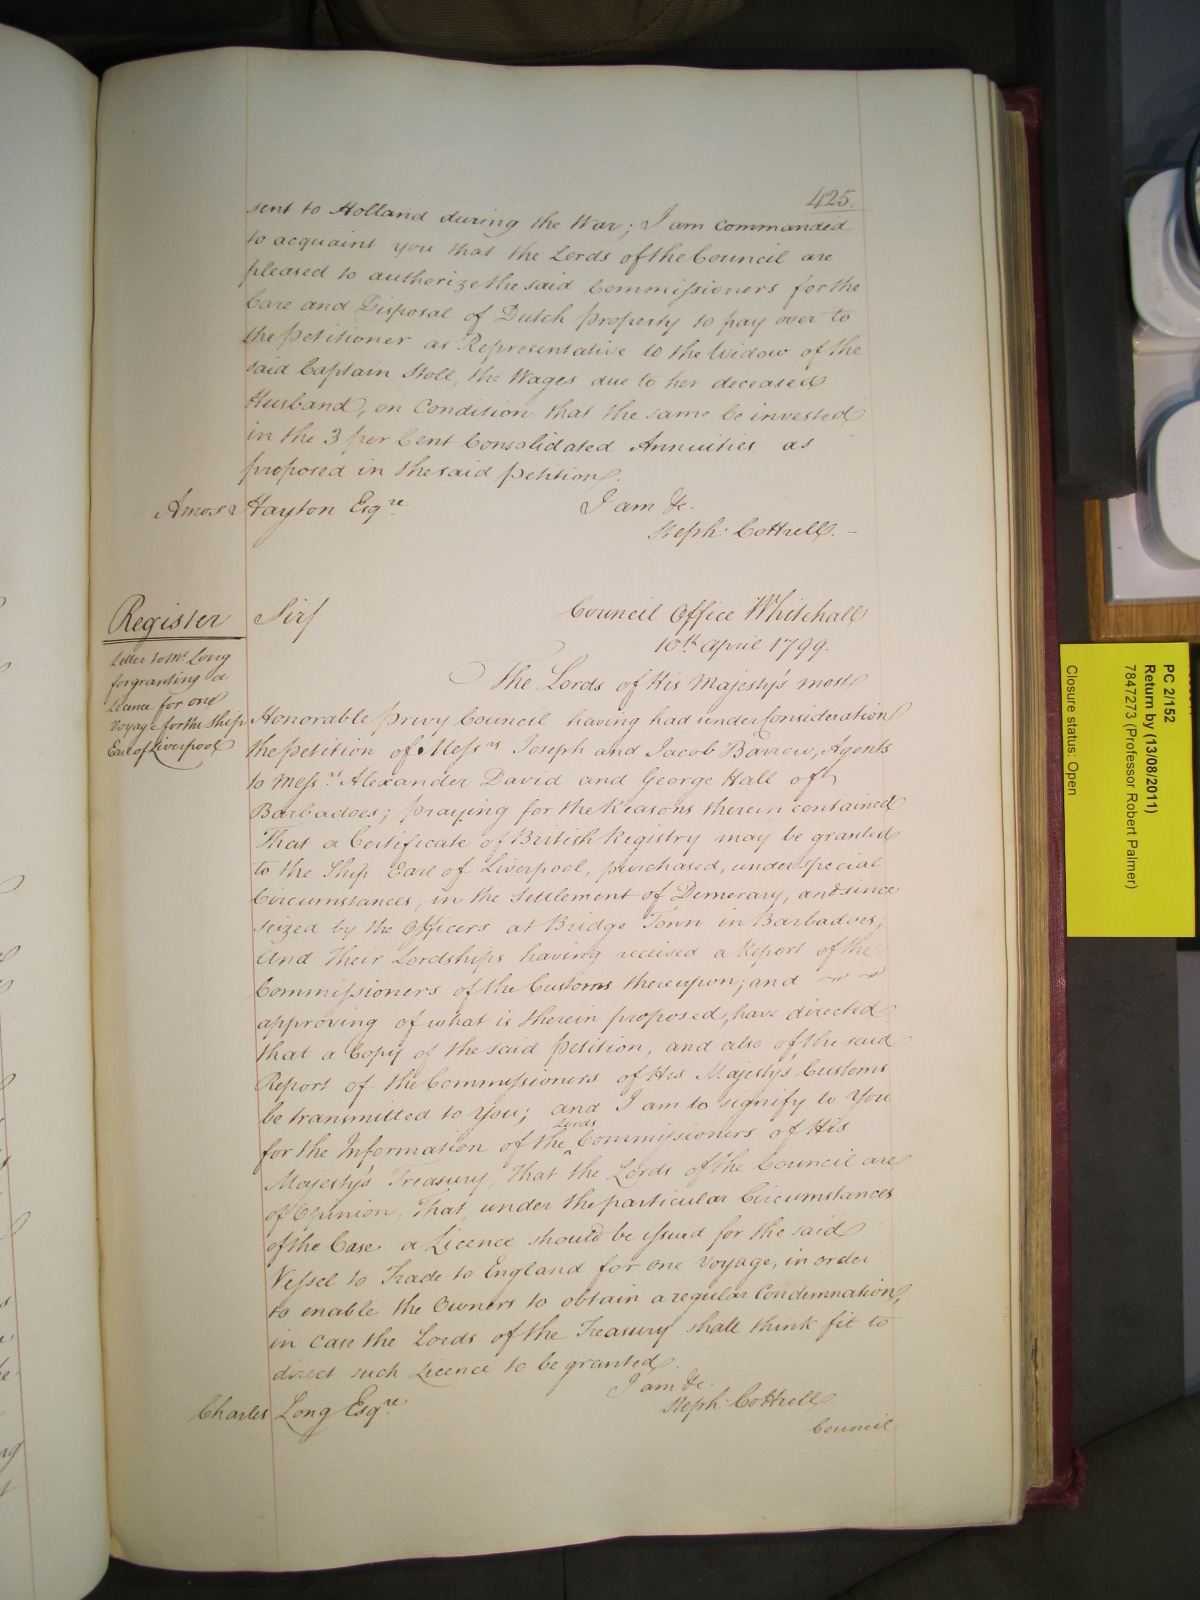 425.
sent to Holland during the War; I am commanded
to acquaint you that the Lords of the Council are
pleased to authorize the said Commissioners for the
Care and Disposal of Dutch property to pay over to
the petitioner as Representative to the Widow of the
said Captain Stoll, the Wages due to her deceased
Husband, on Condition that the same be invested
in the 3 per Cent Consolidated Annuities as
proposed in the said petition.
Amos Hayton Esqre
I am &c.
Steph: Cottrell. -
Register
Letter to Mr Long
for granting a
Licence for one
Voyage for the ship
Earl of Liverpool
Sir/
Council Office Whitehall
10th April 1799.
The Lords of His Majesty's most
Honorable privy Council having had under Consideration
the petition of Messrs Joseph and Jacob Barrow, Agents
to Messrs Alexander David and George Hall of
Barbadoes; praying for the Reasons therein contained
That a Certificate of British Registry may be granted
to the Ship Earl of Liverpool, purchased, under special
Circumstances, in the Settlement of Demerary, and since
seized by the Officers at Bridge Town in Barbadoes;
And Their Lordships having received a Report of the
Commissioners of the Customs thereupon; and
approving of what is therein proposed, have directed
that a Copy of the said petition, and also of the said
Report of the Commissioners of His Majesty's Customs
be transmitted to You; and I am to signify to You
for the Information of the Lords Commissioners of His
Majesty's Treasury, That the Lords of the Council are
of Opinion, That, under the particular Circumstances
of the Case a Licence should be issued for the said
Vessel to Trade to England for one Voyage, in order
to enable the Owners to obtain a regular Condemnation,
in case the Lords of the Treasury shall think fit to
direct such Licence to be granted.
I am &c.
Steph: Cottrell
Charles Long Esqre
Council
PC 2/152
Return by (13/08/2011)
7847273 (Professor Robert Palmer)
Closure status: Open